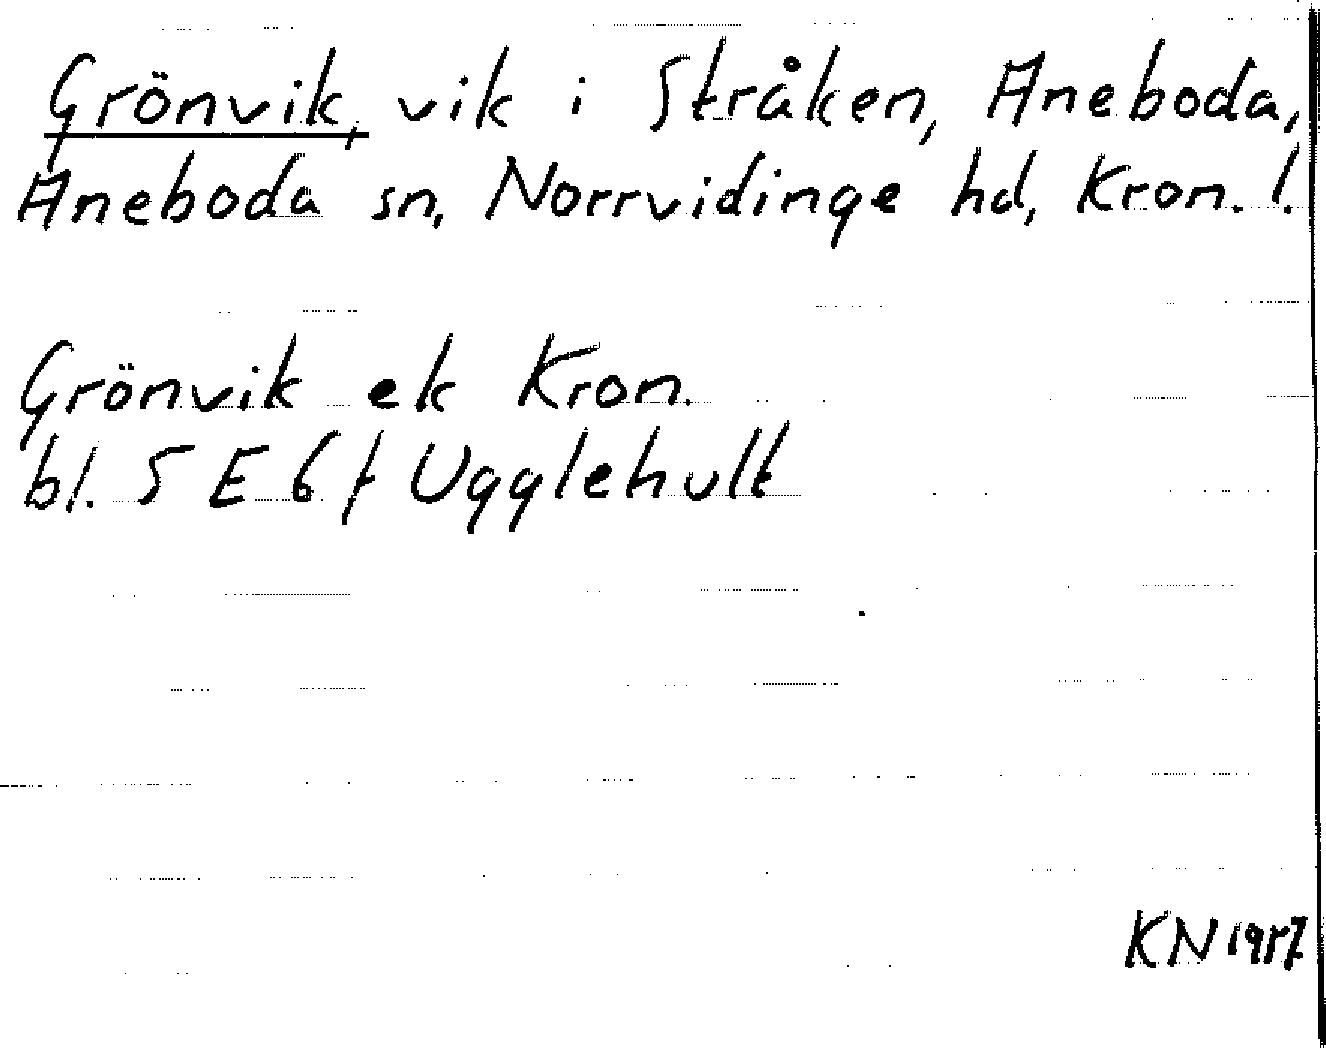 Grönvik, vik i Stråken, Aneboda,
Aneboda sn, Norrvidinge hd, Kron. l.
Grönvik ek Kron.
bl. 5 E 6 f Ugglehult
KN 1957